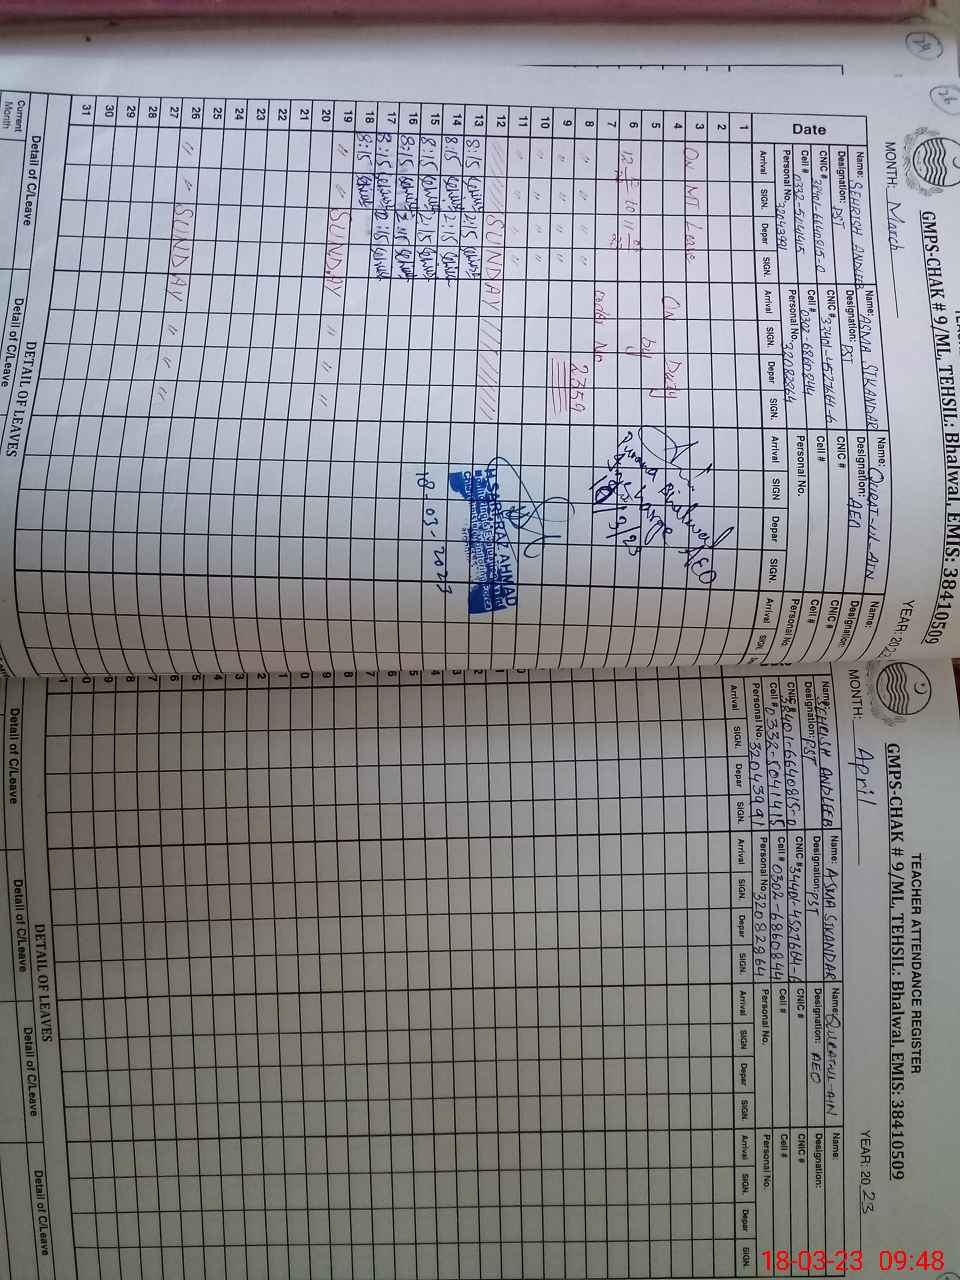 24
26
GMPS-CHAK # 9/ML, TEHSIL: Bhalwal, EMIS: 38410509
MONTH: March
YEAR: 2023
Name: SEHRISH ANDLEEB
Designation: PST
CNIC # 38401-6640815-0
Cell # 0332-5041415
Personal No. 32043991
Name: ASMA SIKANDAR
Designation: PST
CNIC # 34401-4527664-6
Cell # 0302-6860844
Personal No. 32082864
Name: QURAT-UL-AIN
Designation: AEO
CNIC #
Cell #
Personal No.
Name:
Designation:
CNIC #
Cell #
Personal No.
Date
Arrival SIGN. Depar SIGN. Arrival SIGN. Depar SIGN. Arrival SIGN Depar SIGN. Arrival SIGN
1
2
3
4 On MT Leave On Duty
5 by
6
7 order No
8 2359
9 " " " "
10 " " " "
11 " " " "
12 SUNDAY
13 8:15 2:15
14 8:15 2:15
15 8:15 2:15
16 8:15 2:15
17 8:15 2:15
18 8:15
19 " " SUNDAY " " "
20
21
22
23
24
25
26 " " SUNDAY " " "
27
28
29
30
31
AEO
H.SARFRAZ AHMAD
18-03-2023
DETAIL OF LEAVES
Current Month
Detail of C/Leave
Detail of C/Leave
TEACHER ATTENDANCE REGISTER
GMPS-CHAK # 9/ML, TEHSIL: Bhalwal, EMIS: 38410509
MONTH: April
YEAR: 2023
Name: SEHRISH ANDLEEB
Designation: PST
CNIC # 38401-6640815-0
Cell # 0332-5041415
Personal No. 32043991
Name: ASMA SIKANDAR
Designation: PST
CNIC # 34401-4527664-6
Cell # 0302-6860844
Personal No. 32082864
Name: QURATUL-AIN
Designation: AEO
CNIC #
Cell #
Personal No.
Name:
Designation:
CNIC #
Cell #
Personal No.
Arrival SIGN. Depar SIGN. Arrival SIGN. Depar SIGN. Arrival SIGN Depar SIGN. Arrival SIGN. Depar SIGN.
DETAIL OF LEAVES
Detail of C/Leave
Detail of C/Leave
Detail of C/Leave
Detail of C/Leave
18-03-23 09:48